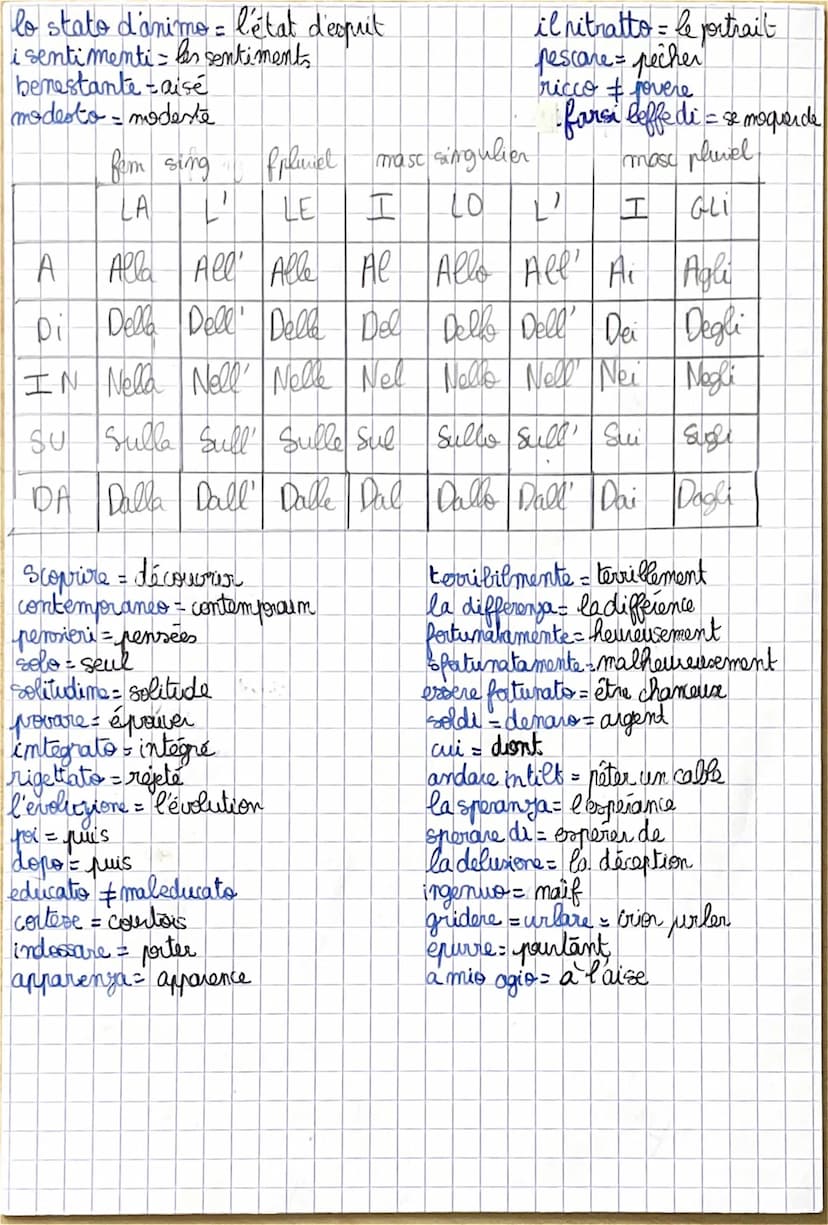 lo stato d'animo = l'état d'esprit
i sentimenti = les sentiments
benestante = aisé
modesto = modeste
il ritratto = le portrait
pescare = pêcher
ricco ≠ povere
farsi beffe di = se moquer de
fem sing f pluriel masc singulier masc pluriel
LA L' LE I LO L' I GLI
A Alla All' Alle Al Allo All' Ai Agli
Di Della Dell' Delle Del Dello Dell' Dei Degli
IN Nella Nell' Nelle Nel Nello Nell' Nei Negli
SU Sulla Sull' Sulle Sul Sullo Sull' Sui Sugli
DA Dalla Dall' Dalle Dal Dallo Dall' Dai Dagli
scoprire = découvrir
contemporaneo = contemporain
pensieri = pensées
solo = seul
solitudine = solitude
provare = éprouver
integrato = intégré
rigettato = rejeté
l'evoluzione = l'évolution
poi = puis
dopo = puis
educato ≠ maleducato
cortese = courtois
indossare = porter
apparenza = apparence
terribilmente = terriblement
la differenza = la différence
fortunatamente = heureusement
sfortunatamente = malheureusement
essere fortunato = être chanceux
soldi = denaro = argent
cui = dont
andare in tilt = péter un cable
la speranza = l'espérance
sperare di = espérer de
la delusione = la déception
ingenuo = naïf
gridere = urlare = crier hurler
epurre = pourtant
a mio agio = à l'aise